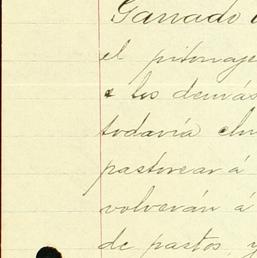 Ganado
el pitonaje
a los demás
todavía
pastorear á
volverán á
de pastos, y